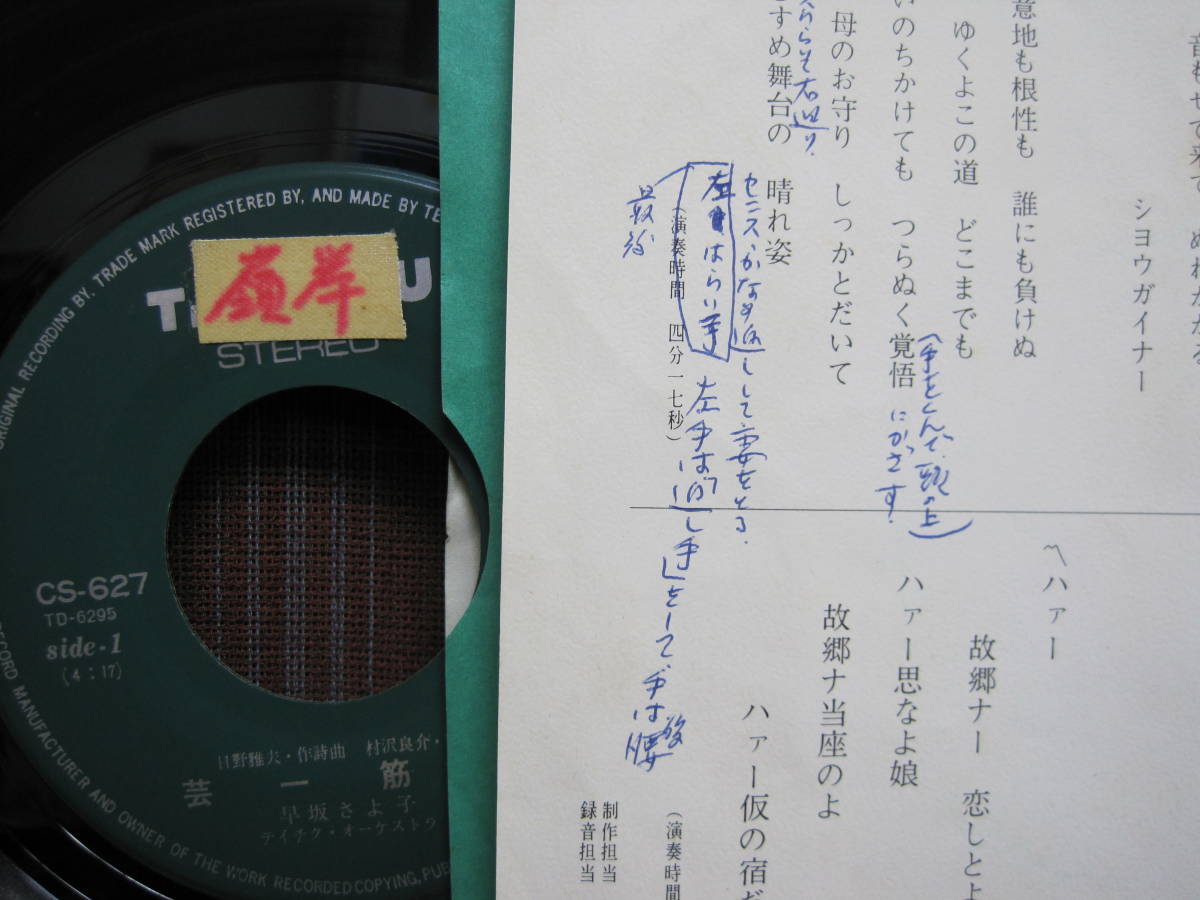 ORIGINAL RECORDING BY, TRADE MARK REGISTERED BY, AND MADE BY TE
STEREO
CS-627
TD-6295
side-1
(4:17)
日野雅夫・作詩曲 村沢良介・
芸一筋
早坂さよ子
テイチク・オーケストラ
RECORD MANUFACTURER AND OWNER OF THE WORK RECORDED COPYING, PUB
ショウガイナー
意地も根性も 誰にも負けぬ
ゆくよこの道 どこまでも
いのちかけても つらぬく覚悟
母のお守り しっかとだいて
すめ舞台の 晴れ姿
(演奏時間 四分一七秒)
(手をくんで、頭の上)
にかざす!
右廻り.
センスかなめ返しして要をとる.
左手はらい手
最後
左手は「返し手」をして、手は腰
〽ハァー
故郷ナー 恋しとよ
ハァー思なよ娘
故郷ナ当座のよ
ハァー仮の宿だ
(演奏時間
制作担当
録音担当